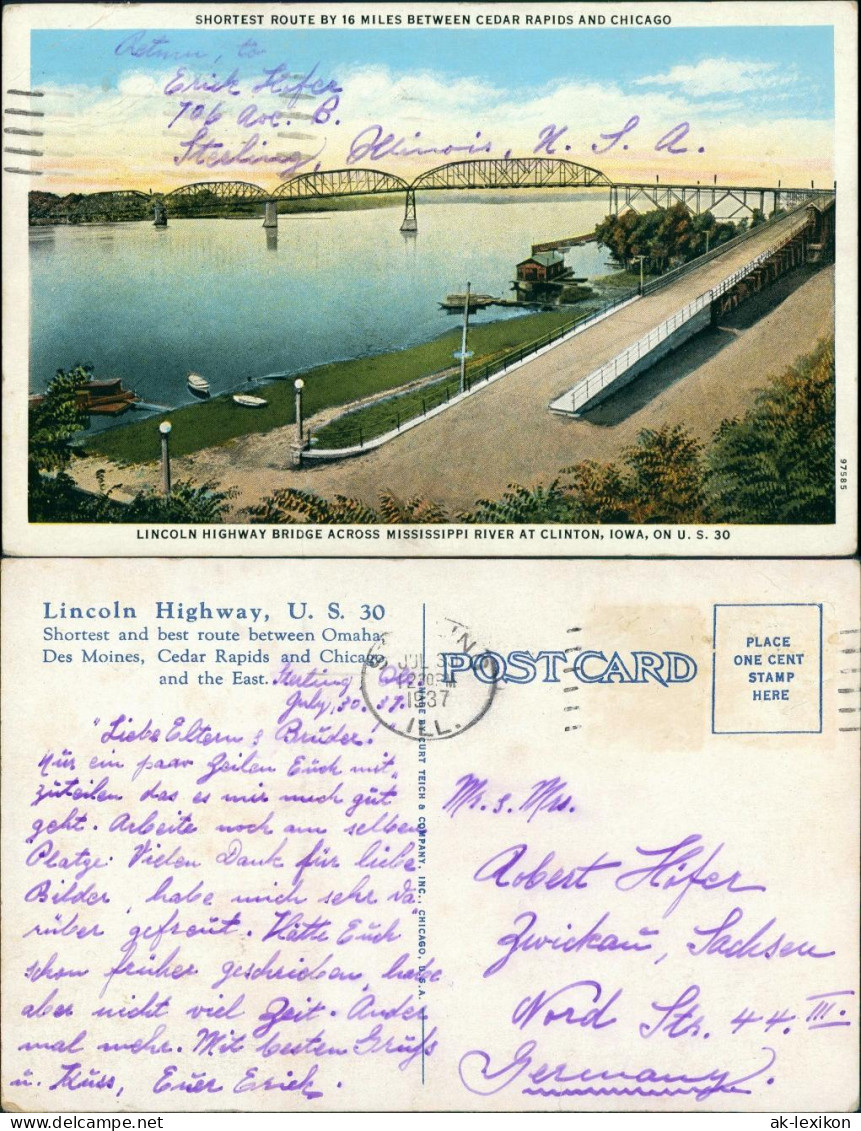 SHORTEST ROUTE BY 16 MILES BETWEEN CEDAR RAPIDS AND CHICAGO
Return, to
Erick Höfer
706 Ave. B.
Sterling, Illinois, U. S. A.
97585
LINCOLN HIGHWAY BRIDGE ACROSS MISSISSIPPI RIVER AT CLINTON, IOWA, ON U. S. 30
Lincoln Highway, U. S. 30
Shortest and best route between Omaha,
Des Moines, Cedar Rapids and Chicago
and the East.
Sterling Ill.
July, 30. 37.
"Liebe Eltern & Brüder!
Nur ein paar Zeilen Euch mit,
zuteilen das es mir noch gut
geht. Arbeite noch am selben
Platze. Vielen Dank für liebe
Bilder, habe mich sehr da,
rüber gefreut. Hätte Euch
schon früher geschrieben, habe
aber nicht viel Zeit. Ander
mal mehr. Mit besten Gruß
u. Kuss, Euer Erick.
JUL 3
1937
ILL.
POST CARD
PLACE
ONE CENT
STAMP
HERE
MADE BY CURT TEICH & COMPANY, INC., CHICAGO, U.S.A.
Mr. & Mrs.
Robert Höfer
Zwickau, Sachsen
Nord Str. 44. III.
Germany.
www.ansichtskarten-lexikon.de
ak-lexikon